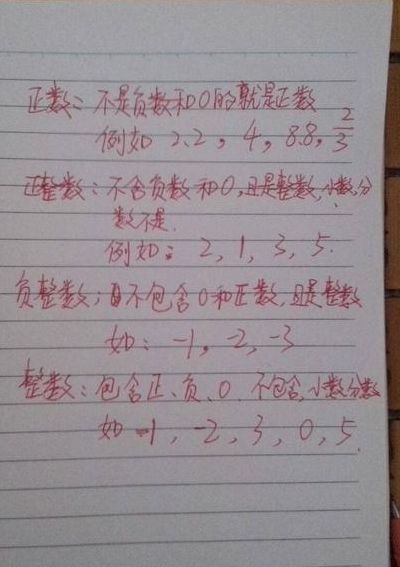 正数：不是负数和0的就是正数
例如 2.2，4，88，2/3
正整数：不含负数和0，且是整数，小数，分
数不是.
例如：2，1，3，5.
负整数：不包含0和正数，且是整数
如：-1，-2，-3
整数：包含正、负、0.不包含，小数分数
如-1，-2，3，0，5.